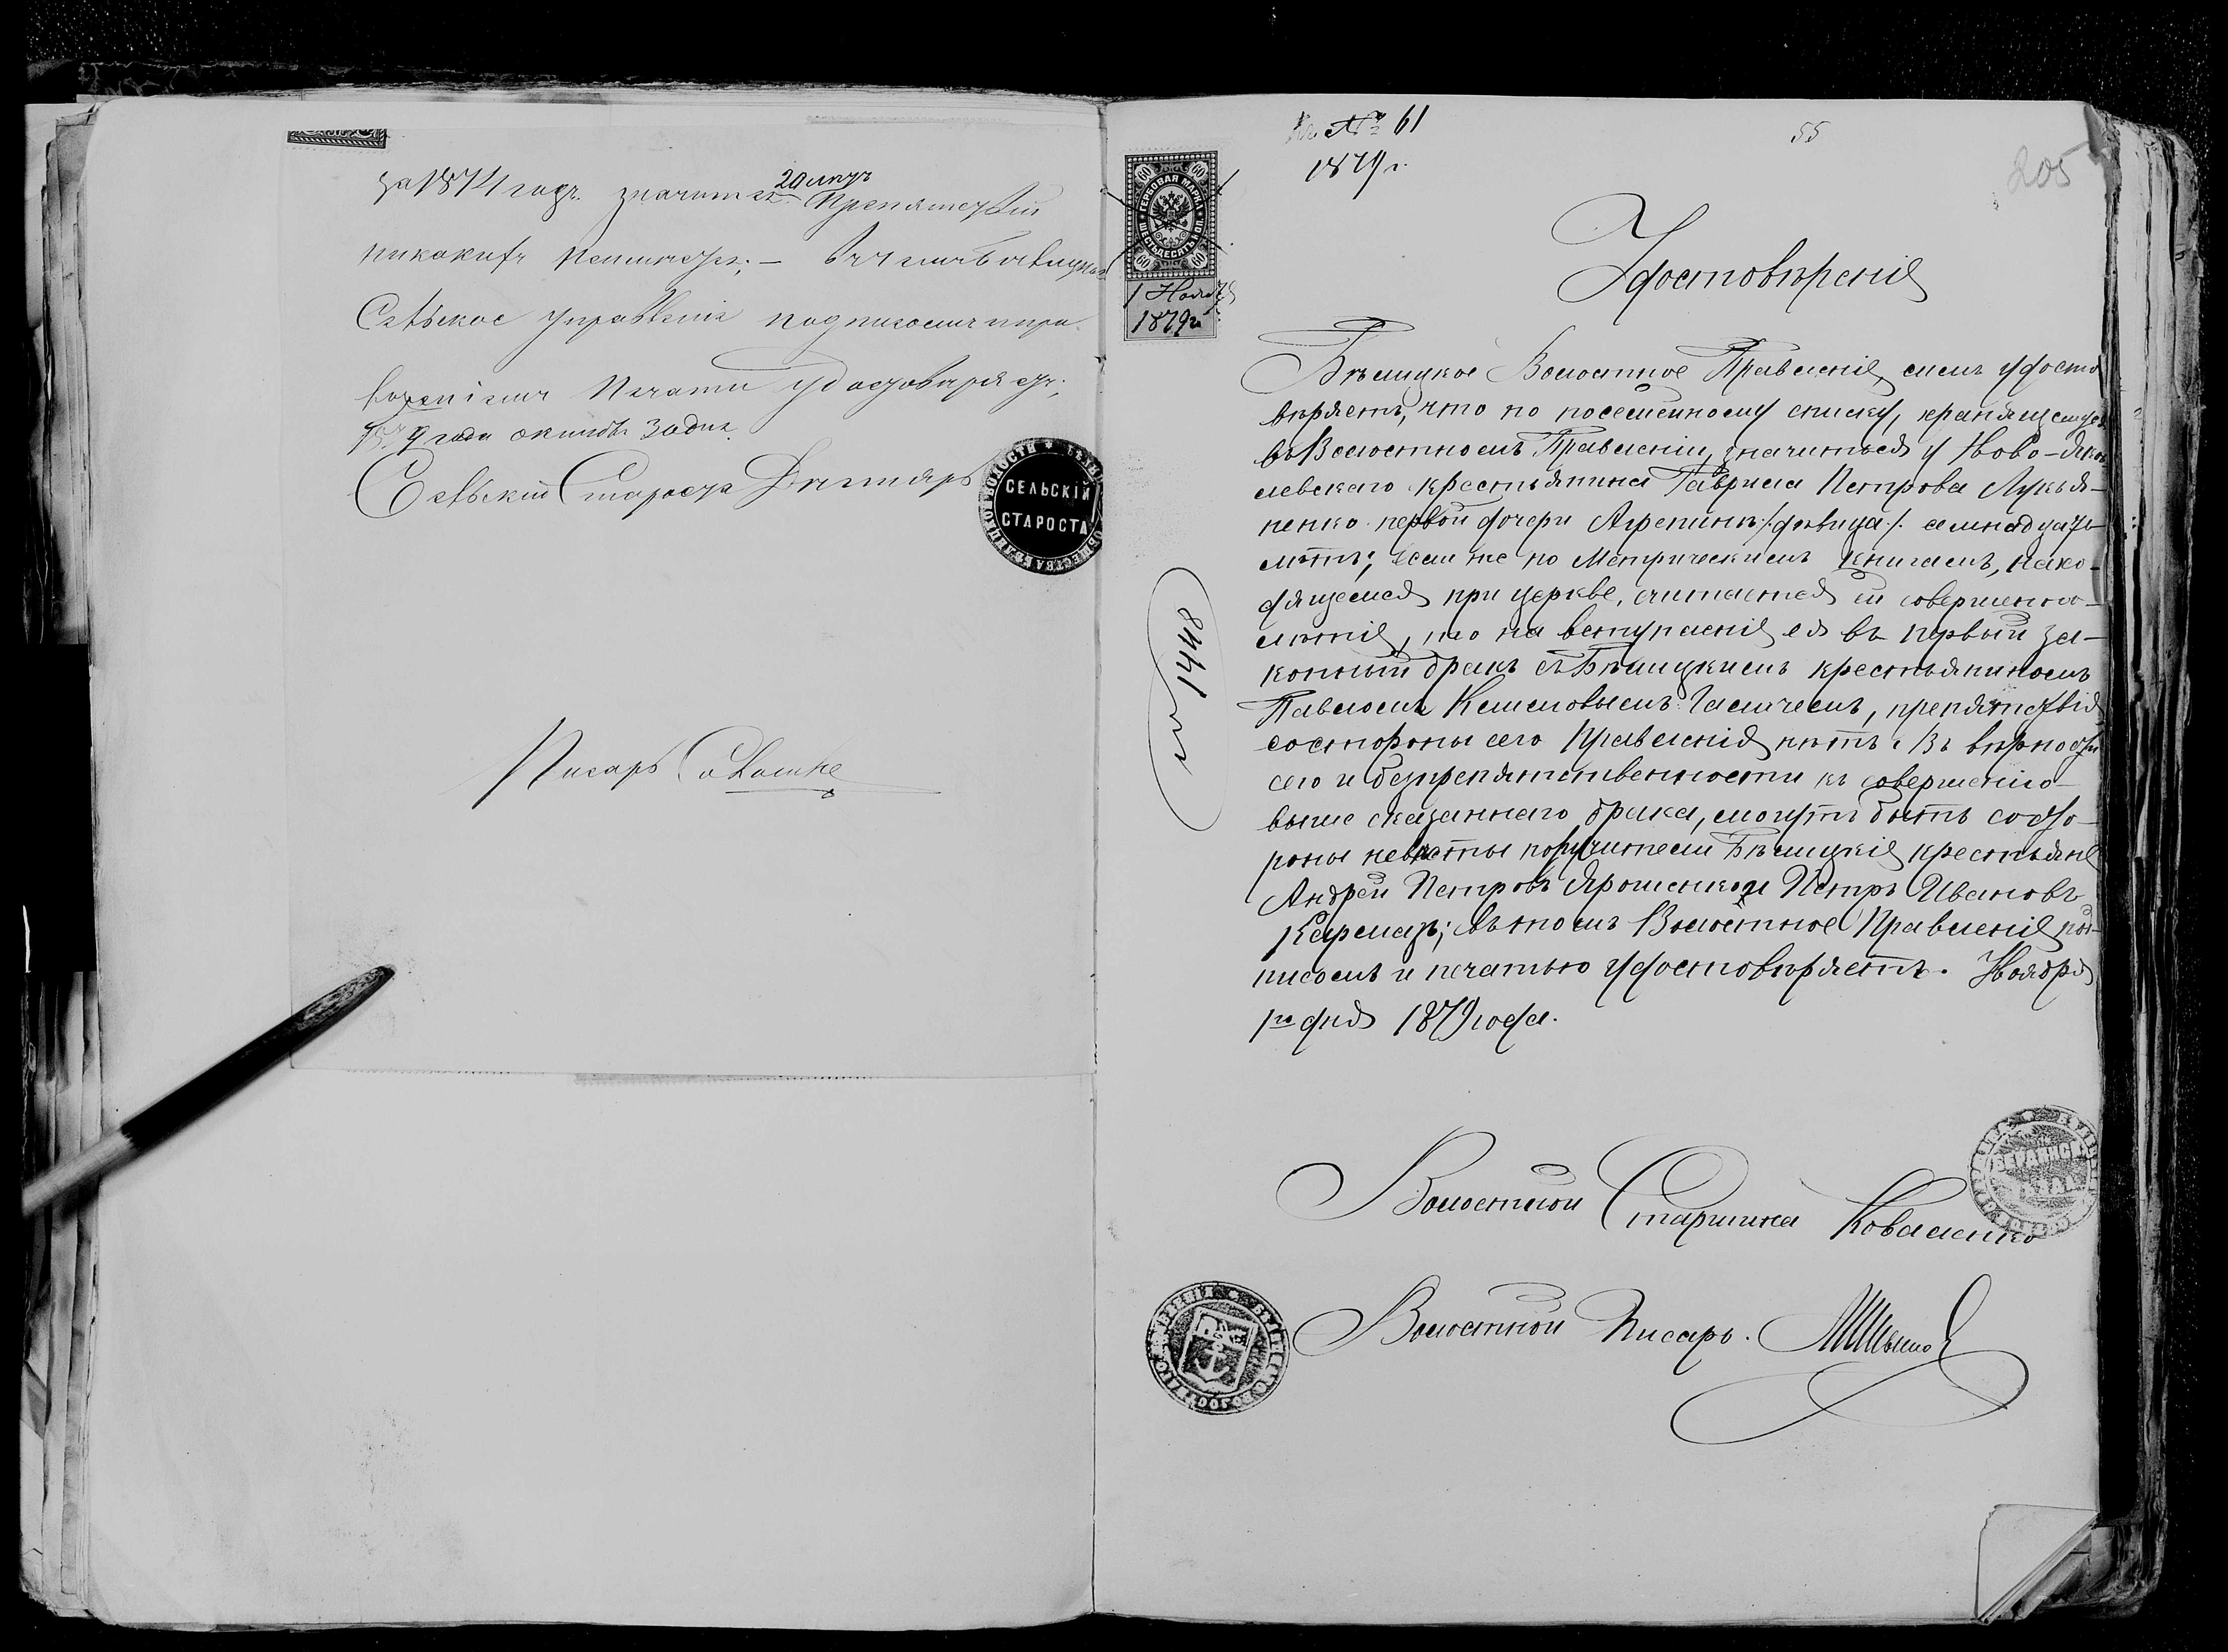 за 1874 годъ значится 20 летъ Препятствій
никакихъ неимеетъ; — въ чемъ Белицкое
Сельское управленіе подписомъ и при
ложеніемъ Печати удостоверяетъ;
1879 года октября 30 дня.
Сельскій Староста Дегтярь
СЕЛЬСКІЙ
СТАРОСТА
Писарь
№ 61
1879 г.
55
205
ГЕРБОВАЯ МАРКА
ШЕСТЬДЕСЯТЪ КОП.
60 60
60 60
1 Ноября
1879 г
№ 1448
Удостовѣреніе
Бѣлицкое Волостное Правленіе симъ удосто
вѣряетъ, что по посемейному списку, хранящемуся
въ Волостномъ Правленіи, значиться у Ново-Яков
левскаго крестьянина Гаврила Петрова Лукья-
ненко первой дочери Агрепинѣ /: дѣвица :/ семнадцать
лѣтъ; если же по Метрическимъ книгамъ, нахо-
дящемся при церкве, считается ей совершенно-
лѣтіе, то на вступленіе ея въ первый за-
конный бракъ съ Бѣлицкимъ крестьяниномъ
Павломъ Галичемъ, препятствія
состороны сего Правленія нѣтъ. Въ вѣрности
сего и безпрепятственности къ совершенію
выше сказаннаго брака, могутъ быть состо-
роны невѣсты поручители Бѣлицкіе крестьяне
Андрей Петровъ Ярошенко и Петръ Ивановъ
Кармазъ; въ томъ Волостное Правленіе под-
писомъ и печатью удостовѣряетъ. Ноября
1го дня 1879 года.
Волостной Старшина Коваленко
Волостной Писарь